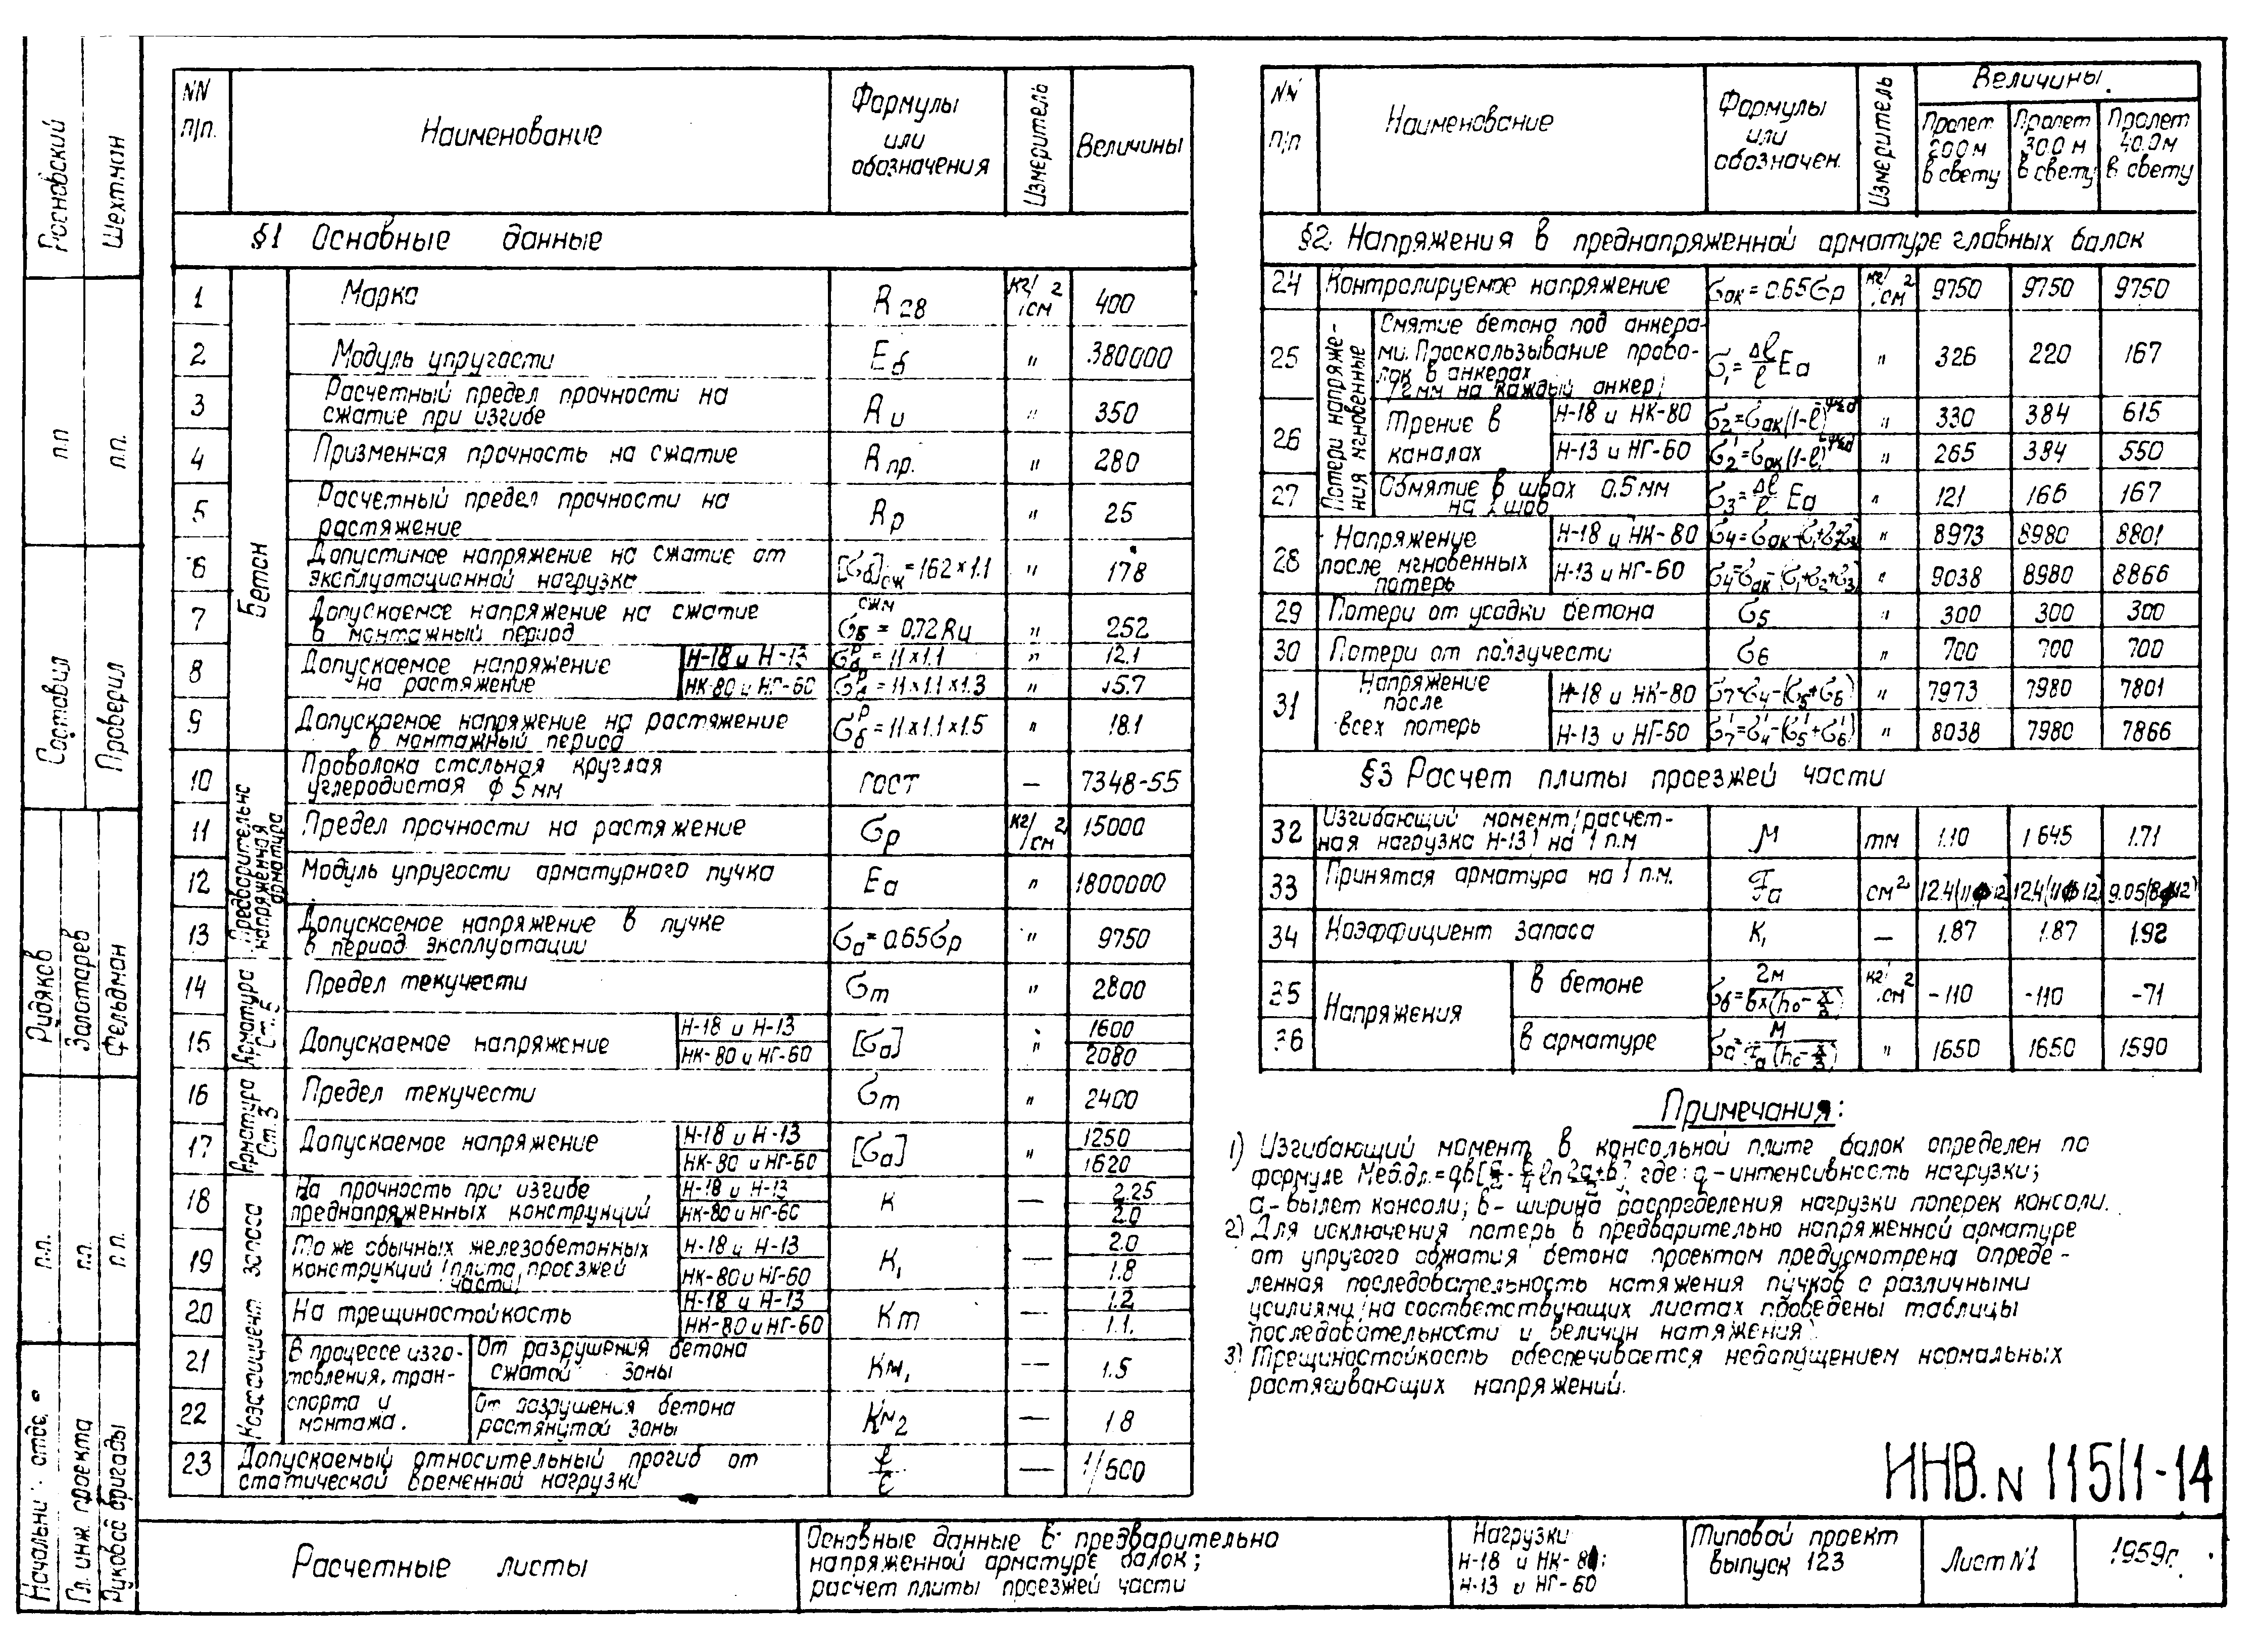 NN п/п. Наименование Формулы или обозначения Измеритель Величины
§1 Основные данные
Бетон
1 Марка R 28 кг/см2 400
2 Модуль упругости Eб " 380000
3 Расчетный предел прочности на сжатие при изгибе Rи " 350
4 Призменная прочность на сжатие Rпр. " 280
5 Расчетный предел прочности на растяжение Rр " 25
6 Допустимое напряжение на сжатие от эксплуатационной нагрузки [σб]сж = 162×1.1 " 178
7 Допускаемое напряжение на сжатие в монтажный период σб сжм = 0.72 Rи " 252
8 Допускаемое напряжение на растяжение Н-18 и Н-13 σб р = 11×1.1 " 12.1
НК-80 и НГ-60 σб р = 11×1.1×1.3 " 15.7
9 Допускаемое напряжение на растяжение в монтажный период σб р = 11×1.1×1.5 " 18.1
Предварительно напряженная арматура
10 Проволока стальная круглая углеродистая ф 5 мм ГОСТ — 7348-55
11 Предел прочности на растяжение σр кг/см2 15000
12 Модуль упругости арматурного пучка Eа " 1800000
13 Допускаемое напряжение в пучке в период эксплуатации σа = 0.65σр " 9750
Арматура Ст.5
14 Предел текучести σт " 2800
15 Допускаемое напряжение Н-18 и Н-13 [σа] " 1600
НК-80 и НГ-60 " 2080
Арматура Ст.3
16 Предел текучести σт " 2400
17 Допускаемое напряжение Н-18 и Н-13 [σа] " 1250
НК-80 и НГ-60 1620
Коэффициент запаса
18 На прочность при изгибе преднапряженных конструкций Н-18 и Н-13 К — 2.25
НК-80 и НГ-60 2.0
19 То же обычных железобетонных конструкций (плита проезжей части) Н-18 и Н-13 К1 — 2.0
НК-80 и НГ-60 1.8
20 На трещиностойкость Н-18 и Н-13 Кт — 1.2
НК-80 и НГ-60 1.1.
В процессе изготовления, транспорта и монтажа.
21 От разрушения бетона сжатой зоны Км1 — 1.5
22 От разрушения бетона растянутой зоны Км2 — 1.8
23 Допускаемый относительный прогиб от статической временной нагрузки f/ℓ — 1/600
NN п/п Наименование Формулы или обозначен. Измеритель Величины.
Пролет 20.0 м в свету Пролет 30.0 м в свету Пролет 40.0м в свету
§2. Напряжения в преднапряженной арматуре главных балок
24 Контролируемое напряжение σак = 0.65σр кг/см2 9750 9750 9750
Потери напряжения мгновенные
25 Смятие бетона под анкерами. Проскальзывание проволок в анкерах /2 мм на каждый анкер/ σ1 = Δℓ/ℓ Eа " 326 220 167
26 Трение в каналах Н-18 и НК-80 " 330 384 615
Н-13 и НГ-60 " 265 384 550
27 Обмятие в швах 0.5 мм на 1 шов σ3 = Δℓ/ℓ Eа " 121 166 167
28 Напряжение после мгновенных потерь Н-18 и НК-80 σ4=σак-(σ1+σ2+σ3) " 8973 8980 8801
Н-13 и НГ-60 σ4'=σак-(σ1+σ2'+σ3) " 9038 8980 8866
29 Потери от усадки бетона σ5 " 300 300 300
30 Потери от ползучести σ6 " 700 700 700
31 Напряжение после всех потерь Н-18 и НК-80 σ7=σ4-(σ5+σ6) " 7973 7980 7801
Н-13 и НГ-60 σ7'=σ4'-(σ5'+σ6') " 8038 7980 7866
§3 Расчет плиты проезжей части
32 Изгибающий момент/расчетная нагрузка Н-13/ на 1 п.м М тм 1.10 1645 1.71
33 Принятая арматура на 1 п.м. Fа см2 12.4/11ф12/ 12.4/11ф12/ 9.05/8ф12/
34 Коэффициент запаса К1 — 1.87 1.87 1.92
Напряжения
35 в бетоне σб = 2м/bx(hо-x/3) кг/см2 -110 -110 -71
36 в арматуре σа = М/Fа(hо-x/3) " 1650 1650 1590
Примечания:
1) Изгибающий момент в консольной плите балок определен по
формуле где: q - интенсивность нагрузки;
а - вылет консоли; в - ширина распределения нагрузки поперек консоли.
2) Для исключения потерь в предварительно напряженной арматуре
от упругого обжатия бетона проектом предусмотрена опреде-
ленная последовательность натяжения пучков с различными
усилиями /на соответствующих листах приведены таблицы
последовательности и величин натяжения/.
3) Трещиностойкость обеспечивается недопущением нормальных
растягивающих напряжений.
ИНВ. N 11511-14
Расчетные листы
Основные данные в предварительно
напряженной арматуре балок;
расчет плиты проезжей части
Нагрузки
Н-18 и НК-80;
Н-13 и НГ-60
Типовой проект
выпуск 123
Лист N1
1959г.
Росновский
Шехтман
п.п
п.п.
Составил
Проверил
Рудяков
Золотарев
Фельдман
п.п.
п.п.
п.п.
Начальник отде.
Гл. инж. проекта
Руковод бригады